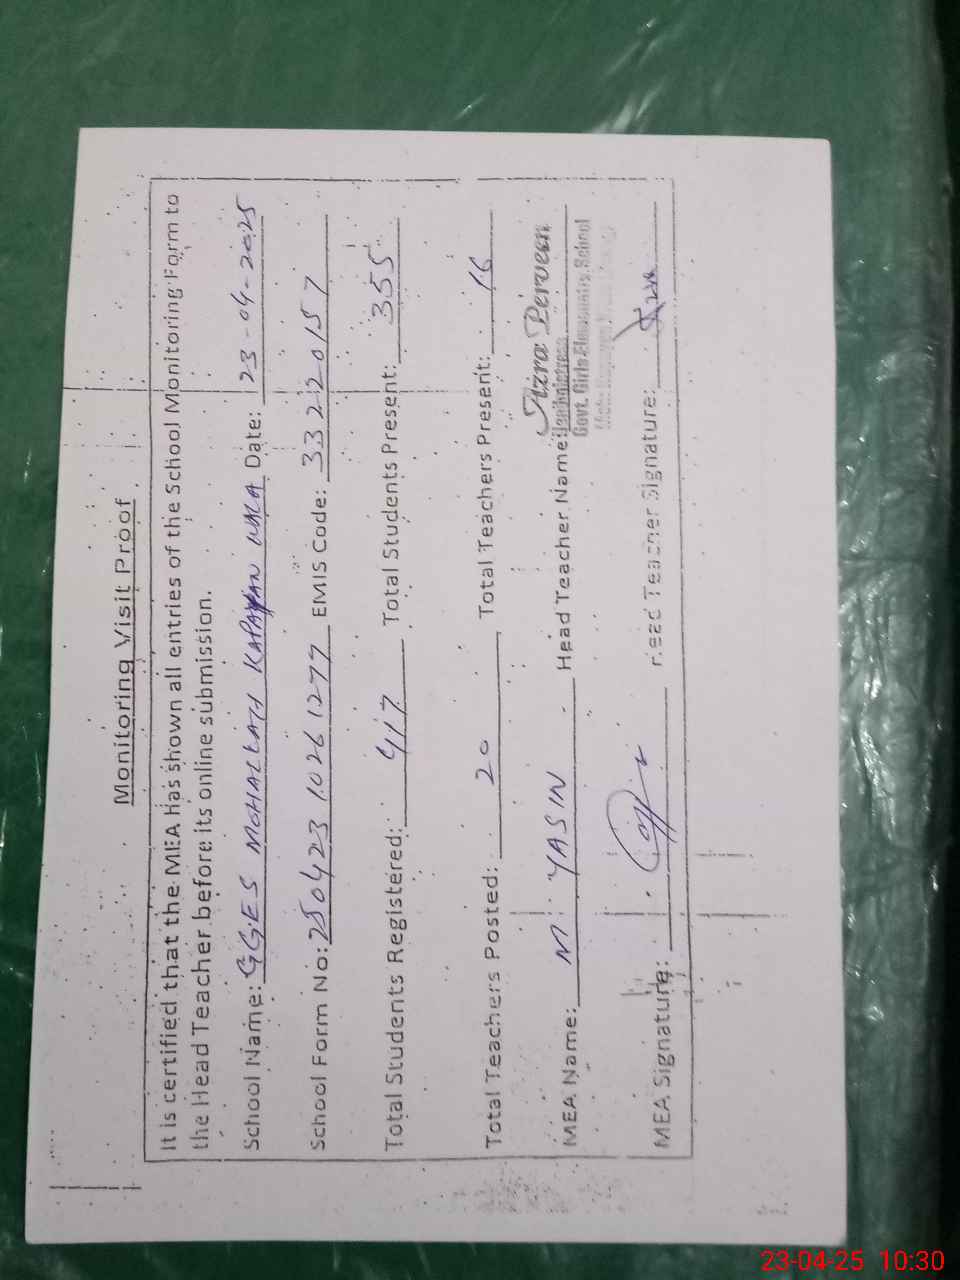 Monitoring Visit Proof
It is certified that the MEA has shown all entries of the School Monitoring Form to
the Head Teacher before its online submission.
School Name: GGES MOHALLAH KAPAYAN WALA Date: 23-04-2025
School Form No: 250423 1026 1277 EMIS Code: 33220157
Total Students Registered: 417 Total Students Present: 355
Total Teachers Posted: 20 Total Teachers Present: 16
MEA Name: M. YASIN Head Teacher Name: Azra Perveen
Headmistress
Govt. Girls Elementary School
MEA Signature: Head Teacher Signature:
23-04-25 10:30